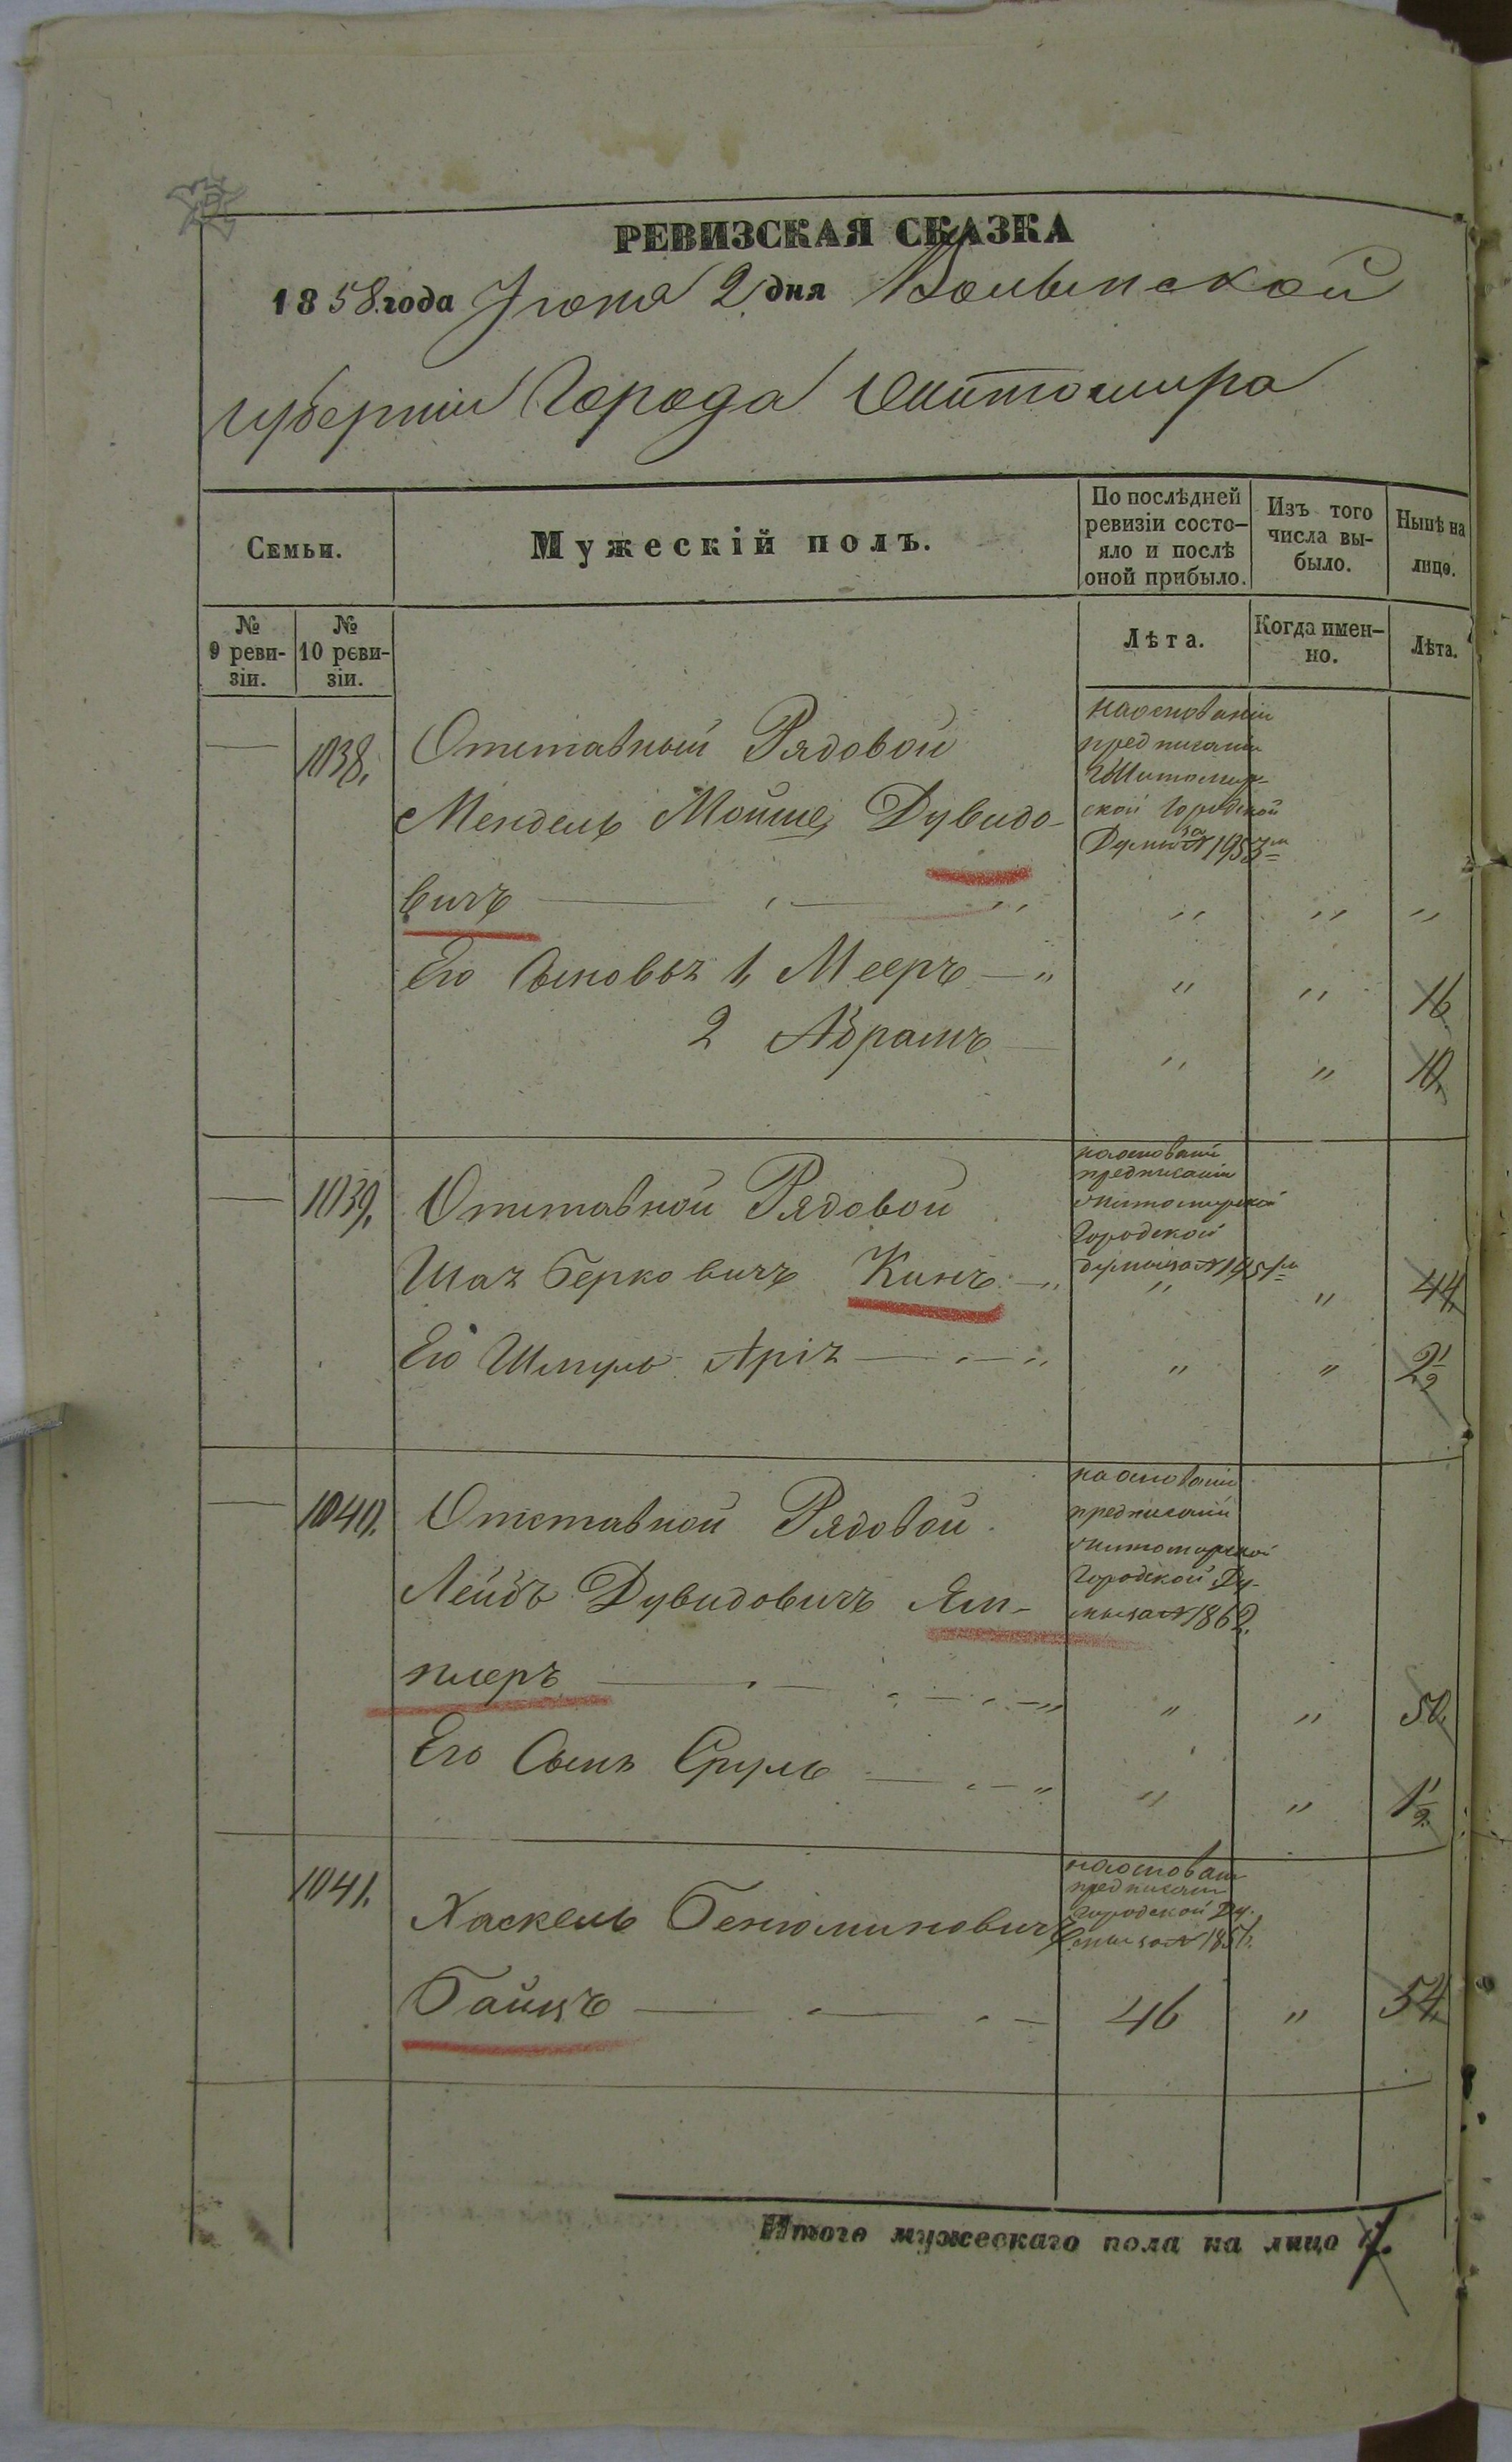 РЕВИЗСКАЯ СКАЗКА
1858 года Iюня 2 дня Волынской
губернiи Города Житомира
Семьи.
Мужескiй полъ.
По послѣдней ревизiи состо-
яло и послѣ
оной прибыло.
Изъ того
числа вы-
было.
Нынѣ на
лицо.
№
9 реви-
зiи.
№
10 реви-
зiи.
Лѣта.
Когда имен-
но.
Лѣта.
— 1038. Отставный Рядовой
Мендель Мойше, Дувидо-
вичъ — " " " "
на основанiи
предписанiи
Житомир-
ской Городской
Думы за № 1953
Его Сыновья 1, Мееръ — " " " 16
2 Абрамъ — " " 10.
— 1039. Отставной Рядовой
Шая Берковичъ Кинъ — " " " 44.
на основанiи
предписанiи
Житомирской
Городской
Его Шмуль Арiя — " " " 2 1/2
— 1040. Отставной Рядовой
Лейбъ Дувидовичъ Ям-
плеръ — " " " 50.
на основанiи
предписанiи
Житомирской
Городской Ду-
мы за № 1862.
Его Сынъ Сруль — " " " 1 1/2
1041. Хаскель Бенюминовичъ
Байцъ — 46 " 54.
на основанiи
предписанiи
Городской Ду-
мы за №
Итого мужескаго пола на лицо 7.